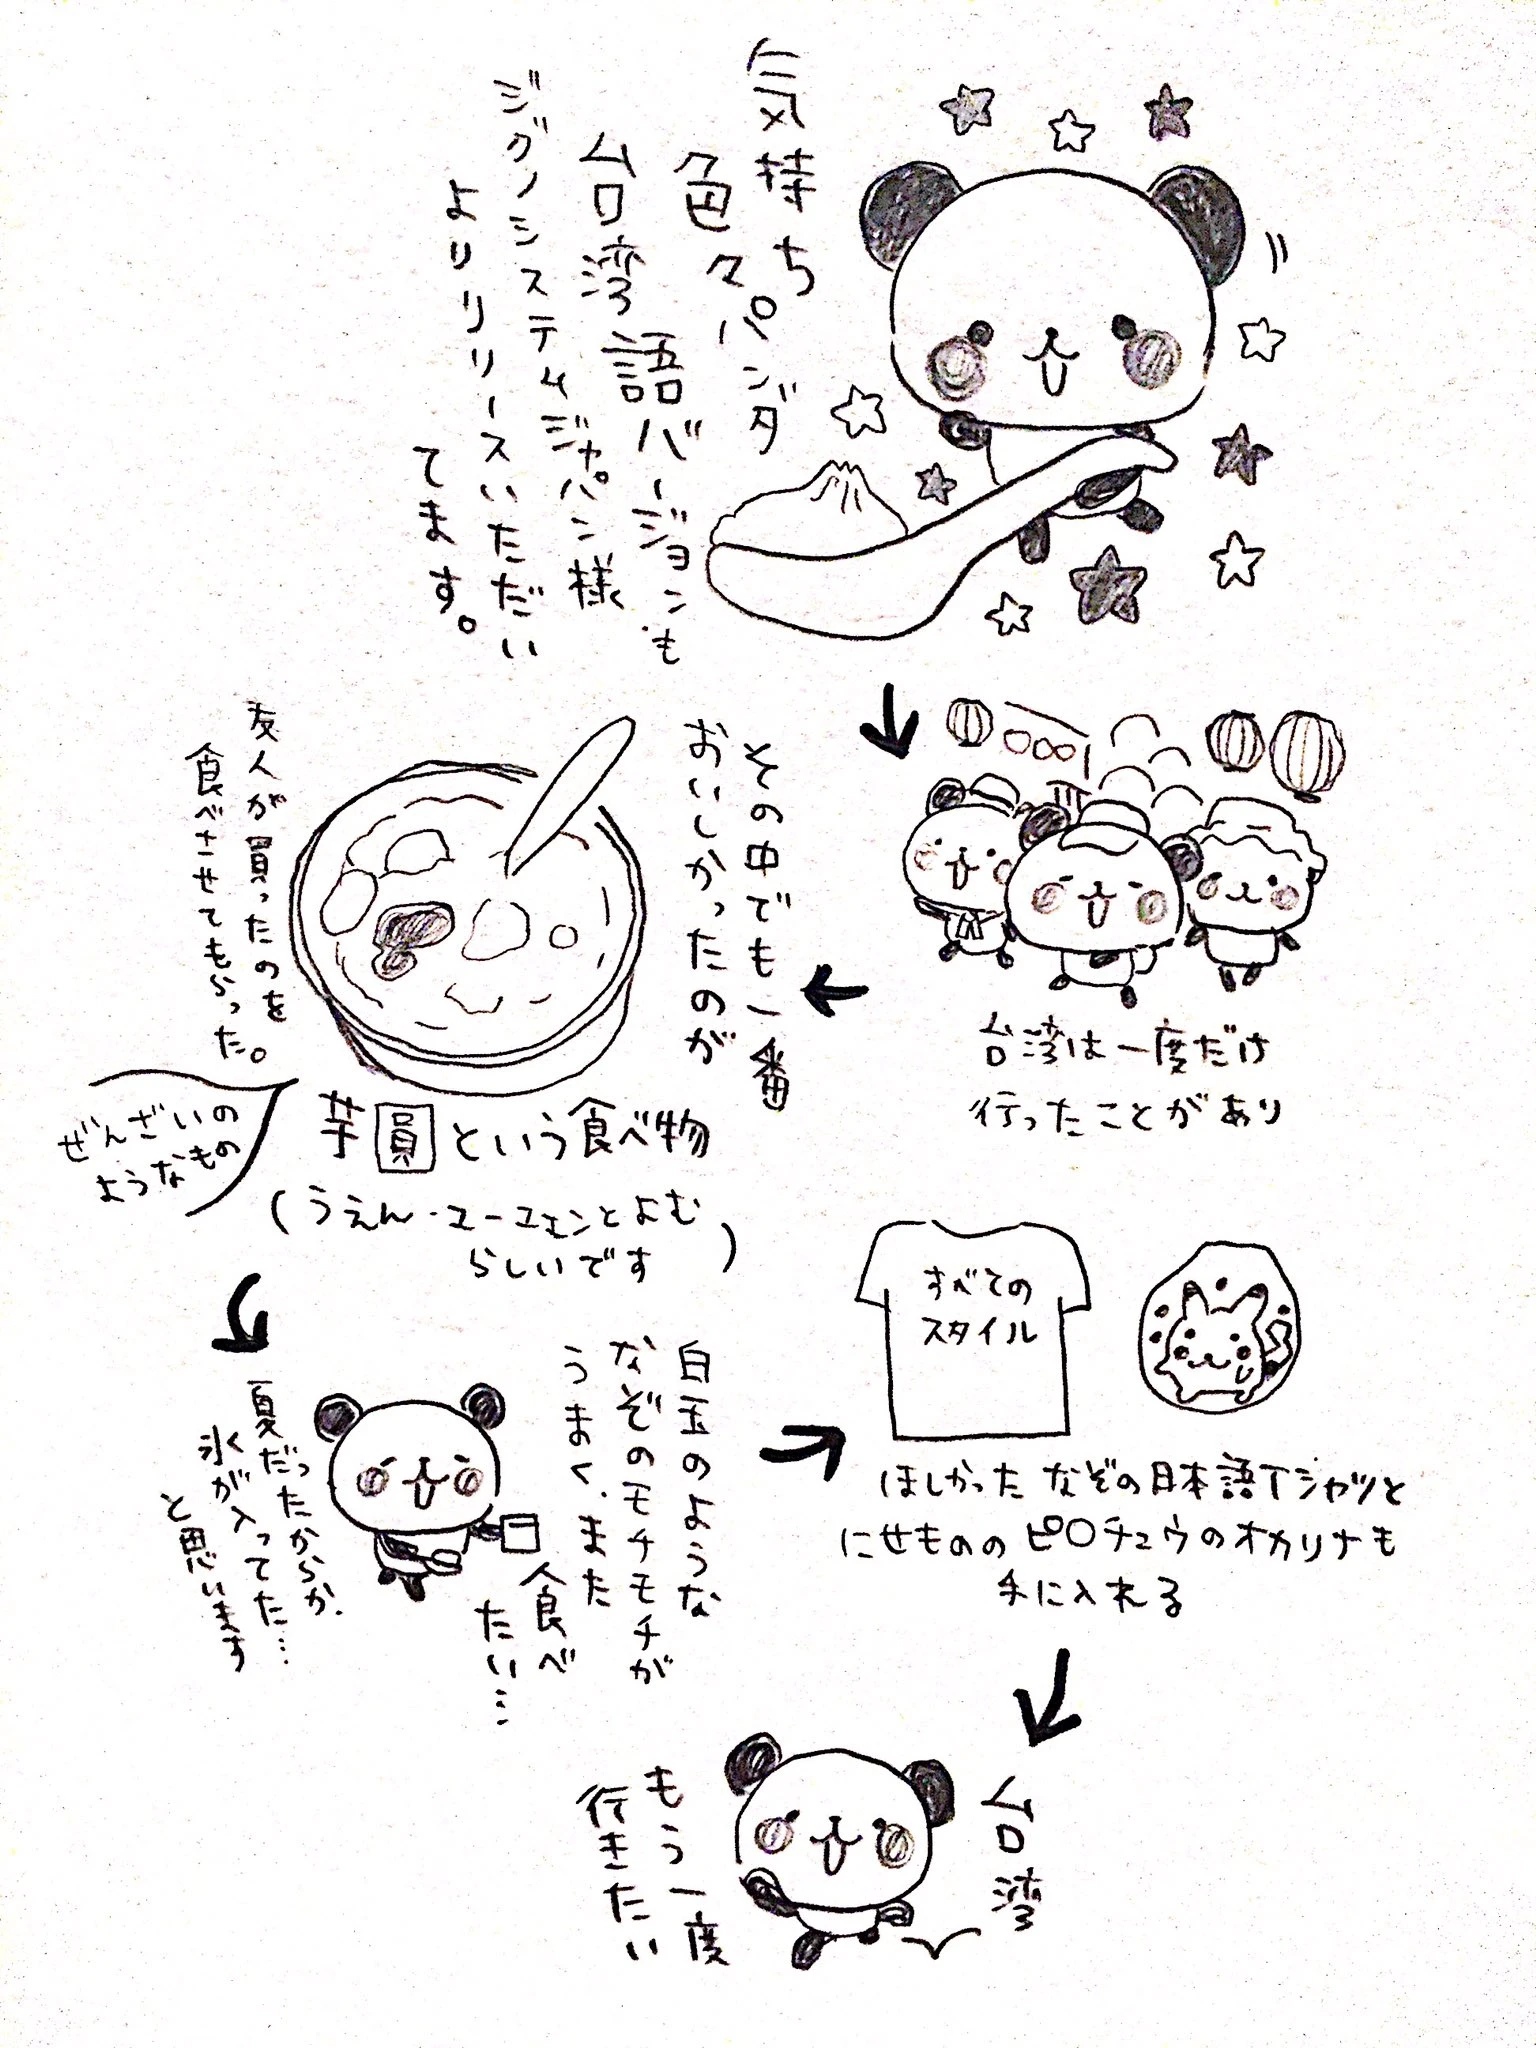 気持ち
色々パンダ
台湾語バージョンも
ジグノシステムジャパン様
よりリリースいただい
てます。
台湾は一度だけ
行ったことがあり
その中でも一番
おいしかったのが
友人が買ったのを。
食べさせてもらった。
芋員という食べ物
(うえん・ユーユェンとよむ
らしいです)
ぜんざいの
ようなもの
白玉のような
なぞのモチモチが
うまく、また
食べ
たい…
夏だったからか、
氷が入ってた…
と思います
すべての
スタイル
ほしかったなぞの日本語Tシャツと
にせもののピ○チュウのオカリナも
手に入れる
台湾
もう一度
行きたい